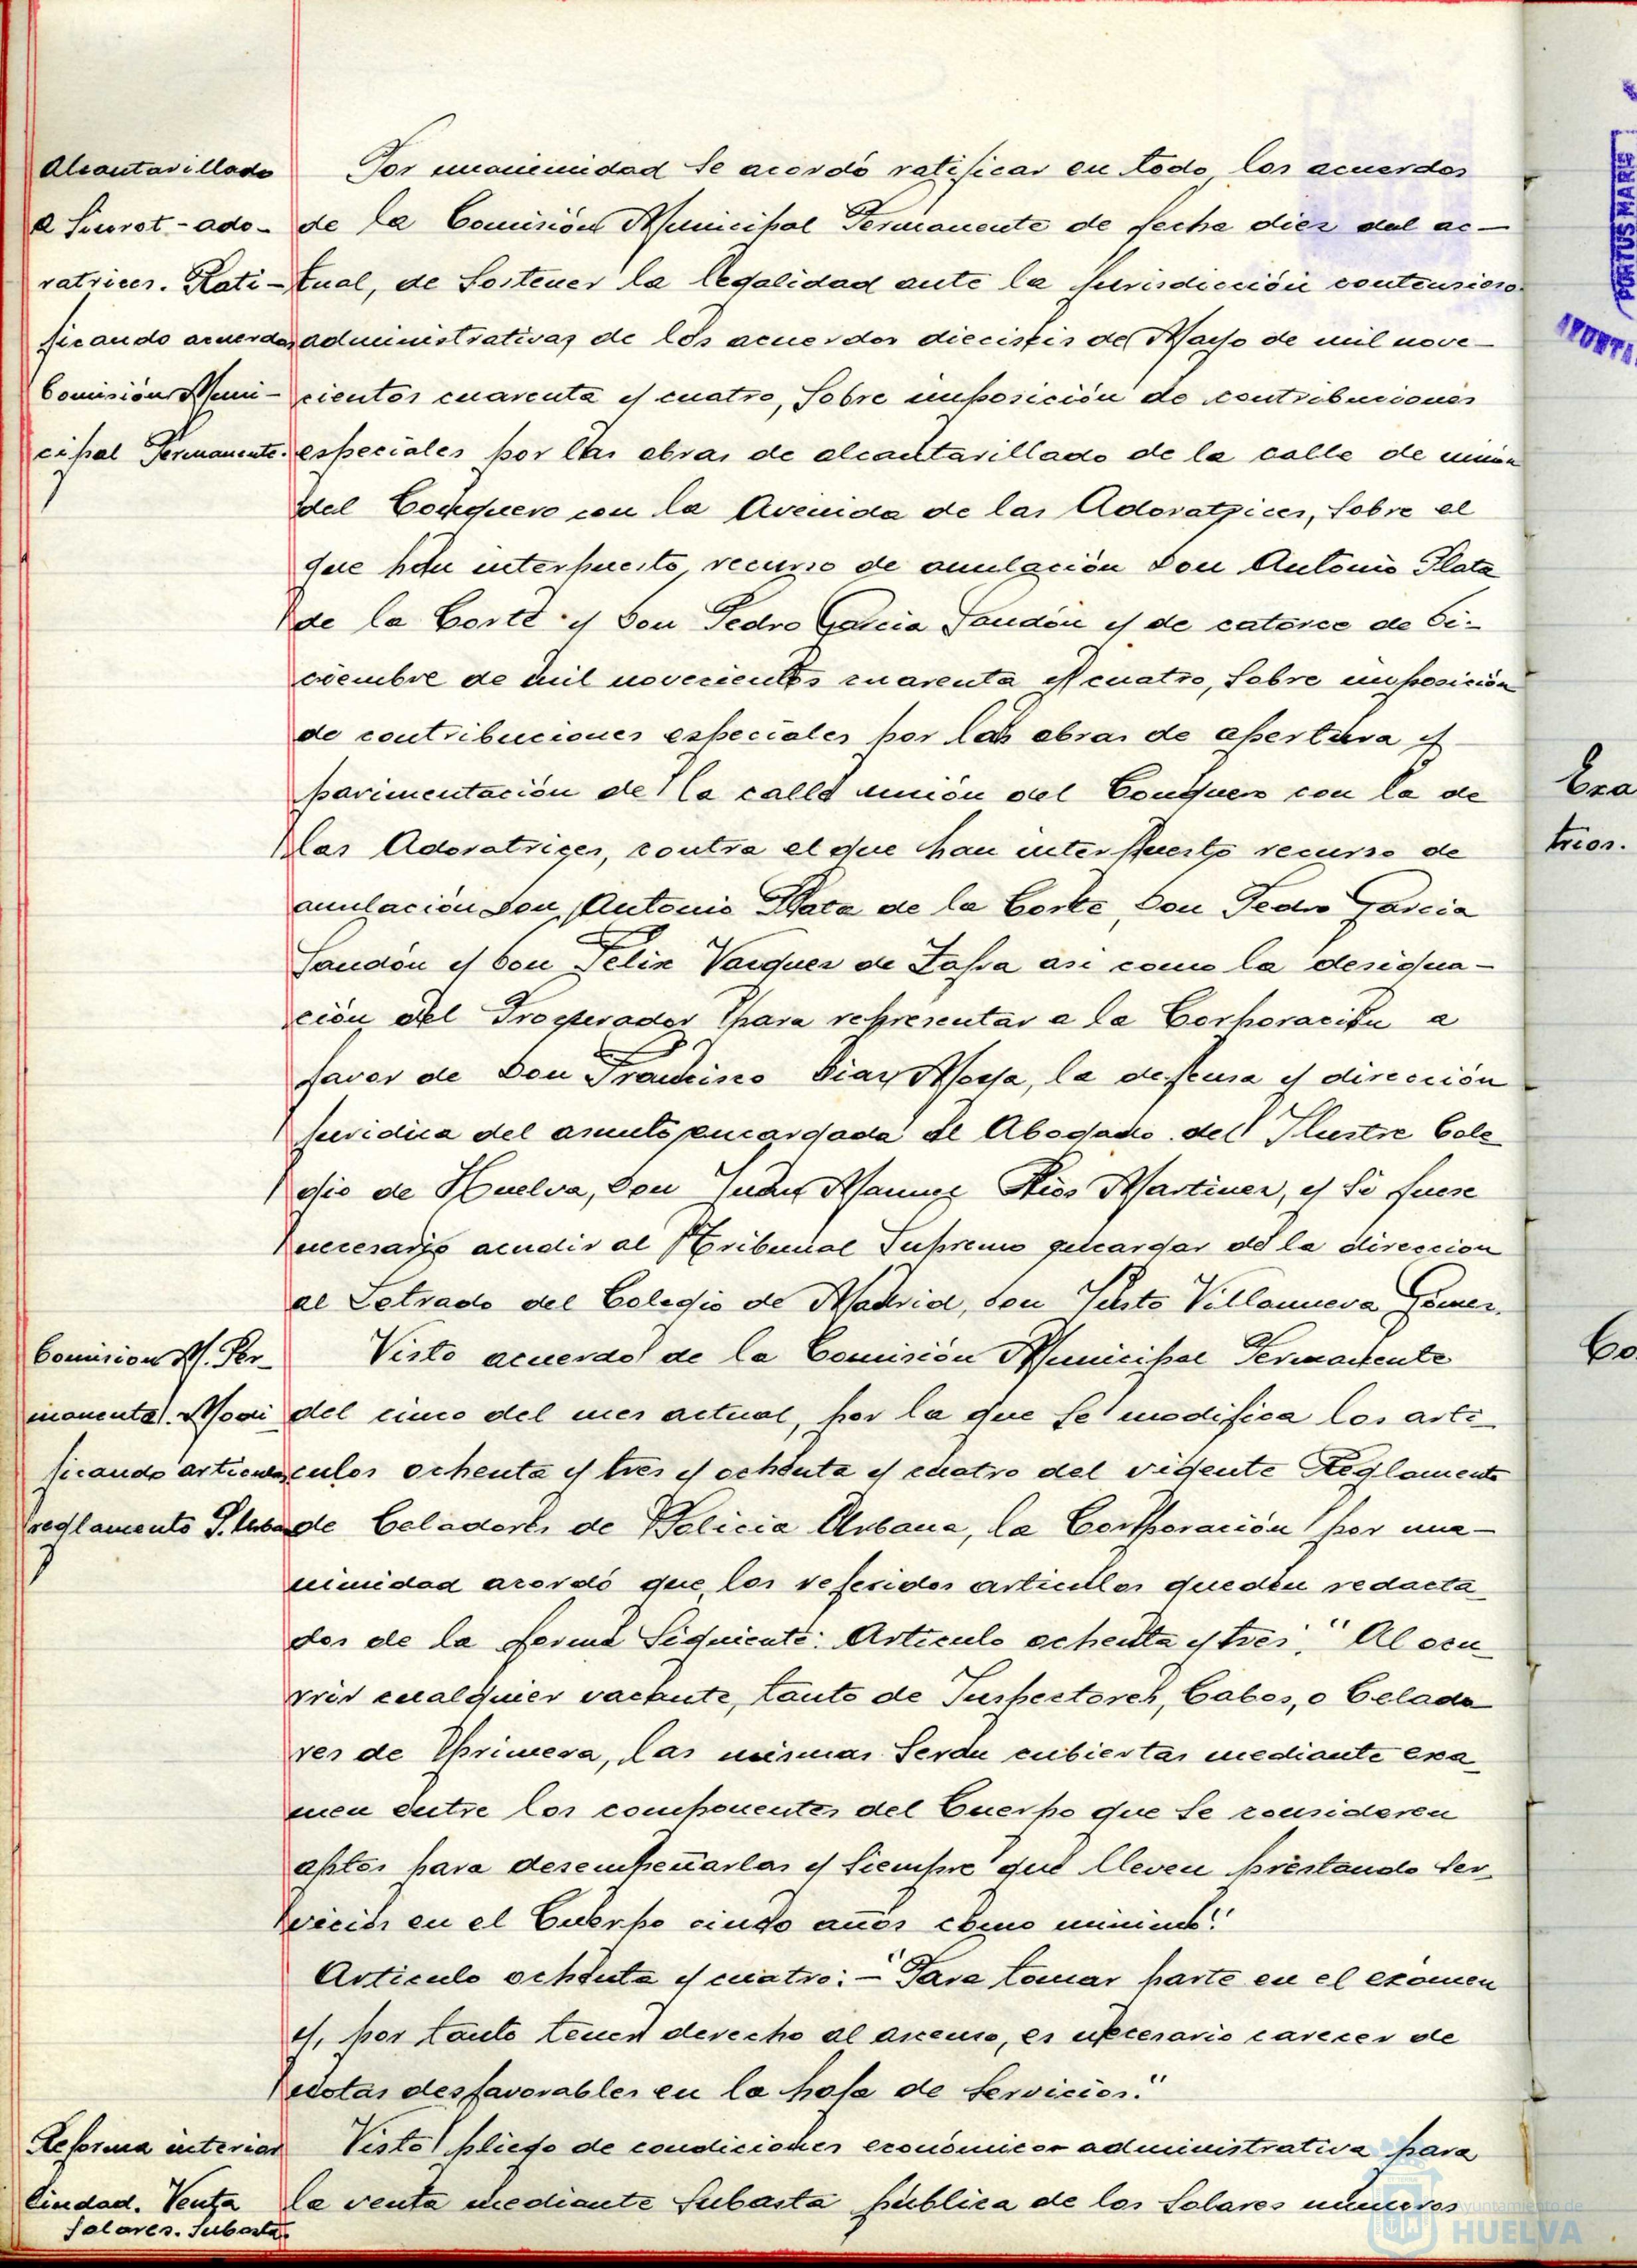 Alcantarillado
a Siurot-ado-
ratrices. Rati-
ficando acuerdos
Comisión Muni-
cipal Permanente.
Por unanimidad se acordó ratificar en todo los acuerdos
de la Comisión Municipal Permanente de fecha diez del ac-
tual, de sostener la legalidad ante la jurisdicción contencioso
administrativas de los acuerdos dieciseis de Mayo de mil nove-
cientos cuarenta y cuatro, sobre imposición de contribuciones
especiales por las obras de alcantarillado de la calle de unión
del Conquero con la Avenida de las Adoratrices, sobre el
que han interpuesto recurso de anulación Don Antonio Plata
de la Corte y Don Pedro Garcia Jandón y de catorce de Di-
ciembre de mil novecientos cuarenta y cuatro, sobre imposición
de contribuciones especiales por las obras de apertura y
pavimentación de la calle unión del Conquero con la de
las Adoratrices, contra el que han interpuesto recurso de
anulación Don Antonio Plata de la Corte, Don Pedro Garcia
Jandón y Don Felix Vazquez de Zafra asi como la designa-
ción del Procurador para representar a la Corporación a
favor de Don Francisco Diaz Moya, la defensa y dirección
juridica del asunto encargada al Abogado del Ilustre Cole
gio de Huelva, Don Juan Manuel Rios Martinez, y si fuese
necesario acudir al Tribunal Supremo encargar de la direccion
al Letrado del Colegio de Madrid, Don Justo Villanueva Gómez.
Comision M. Per-
manente. Modi
ficando articulos
reglamento P. Urba
Visto acuerdo de la Comisión Municipal Permanente
del cinco del mes actual, por la que se modifica los arti
culos ochenta y tres y ochenta y cuatro del vigente Reglamento
de Celadores de Policia Urbana, la Corporación por una-
nimidad acordó que los referidos articulos queden redacta
dos de la forma siguiente: Articulo ochenta y tres: "Al ocu
rrir cualquier vacante, tanto de Inspectores, Cabos, o Celado
res de Primera, las mismas serán cubiertas mediante exa
men entre los componentes del Cuerpo que se consideren
aptos para desempeñarlas y siempre que lleven prestando ser
vicios en el Cuerpo cinco años como minimo".
Articulo ochenta y cuatro: - "Para tomar parte en el exámen
y, por tanto tener derecho al ascenso, es necesario carecer de
notas desfavorables en la hoja de servicios."
Reforma interior
Ciudad. Venta
solares. Subasta.
Visto pliego de condiciones económicor administrativa para
la venta mediante subasta pública de los solares números
PORTUS MARIS
AYUNTA
Exa
trios.
Co
Ayuntamiento de
HUELVA